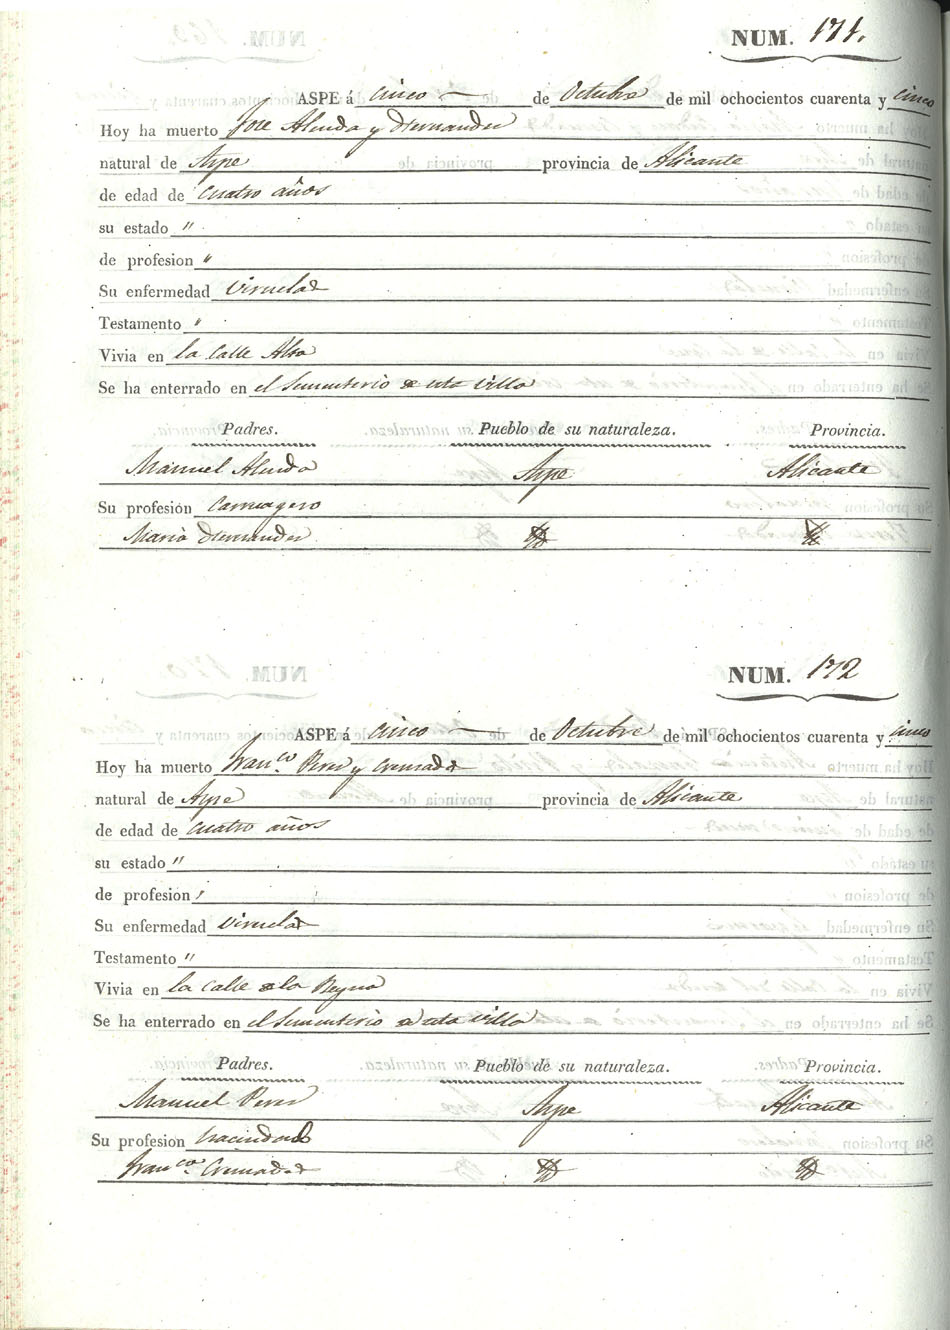 NUM. 171.
ASPE á cinco de Octubre de mil ochocientos cuarenta y cinco
Hoy ha muerto Jose Alenda y Hernandez
natural de Aspe provincia de Alicante
de edad de cuatro años
su estado "
de profesion "
Su enfermedad viruelas
Testamento "
Vivia en la calle Alta
Se ha enterrado en el Sementerio de esta villa
Padres. Pueblo de su naturaleza. Provincia.
Manuel Alenda Aspe Alicante
Su profesión
Maria Hernandez
NUM. 172
ASPE á cinco de Octubre de mil ochocientos cuarenta y cinco
Hoy ha muerto Fran.co Perez y Cremades
natural de Aspe provincia de Alicante
de edad de cuatro años
su estado "
de profesion "
Su enfermedad viruelas
Testamento "
Vivia en la calle de la Reyna
Se ha enterrado en el Sementerio de esta villa
Padres. Pueblo de su naturaleza. Provincia.
Manuel Perez Aspe Alicante
Su profesion
Fran.ca Cremades